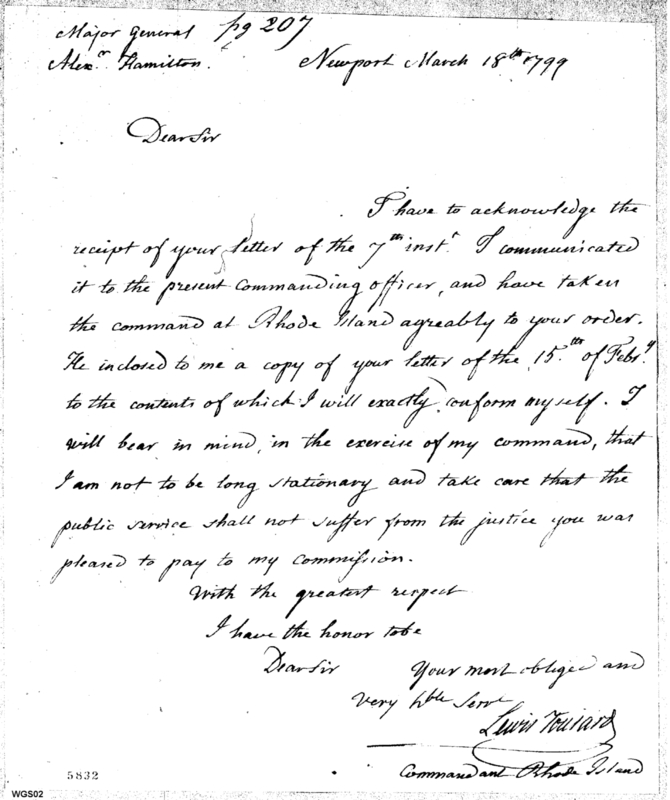 Major General pg 207
Alexr. Hamilton. Newport March 18th 1799
Dear Sir
I have to acknowledge the
receipt of your letter of the 7th inst. I communicated
it to the present Commanding officer, and have taken
the command at Rhode Island agreably to your order.
He inclosed to me a copy of your letter of the 15th of Febry
to the contents of which I will exactly conform myself. I
will bear in mind, in the exercise of my command, that
I am not to be long stationary and take care that the
public service shall not suffer from the justice you was
pleased to pay to my commission.
With the greatest respect
I have the honor to be
Dear Sir Your most obliged and
very hble Servt
Lewis Tousard
Commandant Rhode Island
5832
WGS02